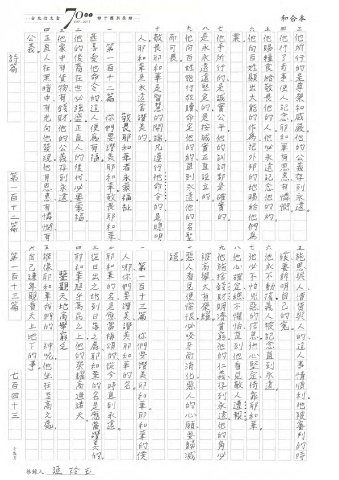 和合本
7000
三他所行的是尊榮和威嚴他的公義存到永遠
四他行了奇事使人記念耶和華有恩惠有憐憫
五他賜糧食給敬畏他的人他必永遠記念他的約
六他向百姓顯出大能的作為把外邦的地賜給他們為
業
七他手所行的是誠實公平他的訓詞都是確實的
八是永永遠遠堅定的是按誠實正直設立的
九他向百姓施行救贖命定他的約直到永遠他的名聖
而可畏
十敬畏耶和華是智慧的開端凡遵行他命令的是聰明
人耶和華是永遠當讚美的
敬畏耶和華者永蒙福祉
第一百十二篇 你們要讚美耶和華敬畏耶和華
甚喜愛他命令的這人便為有福
二他的後裔在世必強盛正直人的後代必要蒙福
三他家中有貨物有錢財他的公義存到永遠
四正直人在黑暗中有光向他發現他有恩惠有憐憫有
公義
詩篇 第一百十二篇
五施恩與人借貸與人的這人事情順利他被審判的時
候要訴明自己的冤
六他永不動搖義人被記念直到永遠
七他必不怕凶惡的信息他心堅定倚靠耶和華
八他心確定總不懼怕直到他看見敵人遭報
九他施捨錢財賙濟貧窮他的仁義存到永遠他的角必
被高舉大有榮耀
十惡人看見便惱恨必咬牙而消化惡人的心願要歸滅
絕
第一百十三篇 你們要讚美耶和華耶和華的僕
人哪你們要讚美讚美耶和華的名
二耶和華的名是應當稱頌的從今時直到永遠
三從日出之地到日落之處耶和華的名是應當讚美的
四耶和華超乎萬民之上他的榮耀高過諸天
五誰像耶和華我們的 神呢他坐在至高之處
六自己謙卑觀看天上地下的事
第一百十三篇 七百四十三
抄錄人